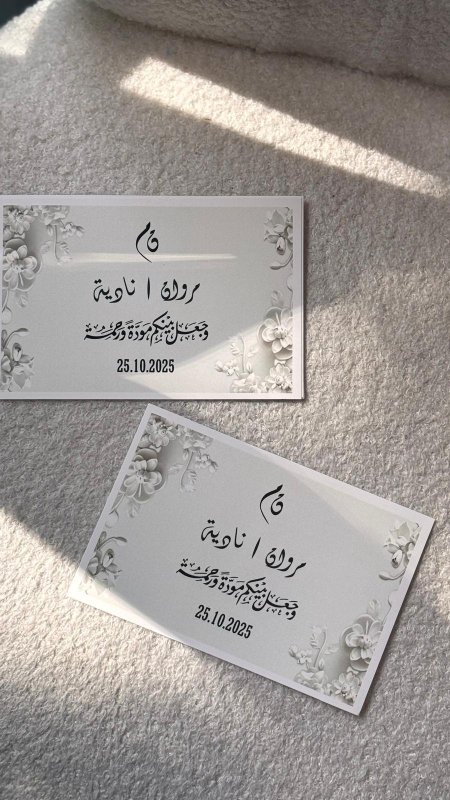 م ن
مروان | نادية
وَجَعَلَ بَيْنَكُم مَّوَدَّةً وَرَحْمَةً
25.10.2025
م ن
مروان | نادية
وَجَعَلَ بَيْنَكُم مَّوَدَّةً وَرَحْمَةً
25.10.2025